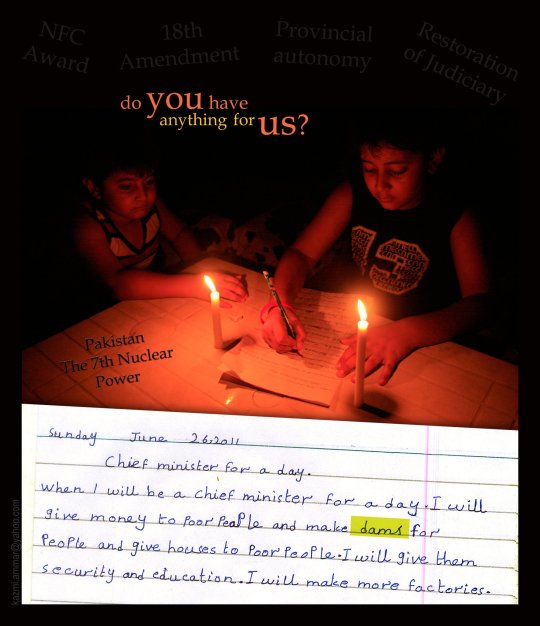 NFC Award
18th Amendment
Provincial autonomy
Restoration of Judiciary
do you have
anything for us?
Pakistan
The 7th Nuclear
Power
Sunday June 26,2011
Chief minister for a day.
when I will be a chief minister for a day. I will
give money to poor people and make dams for
people and give houses to poor people. I will give them
security and education. I will make more factories.
kazmi.ammar@yahoo.com